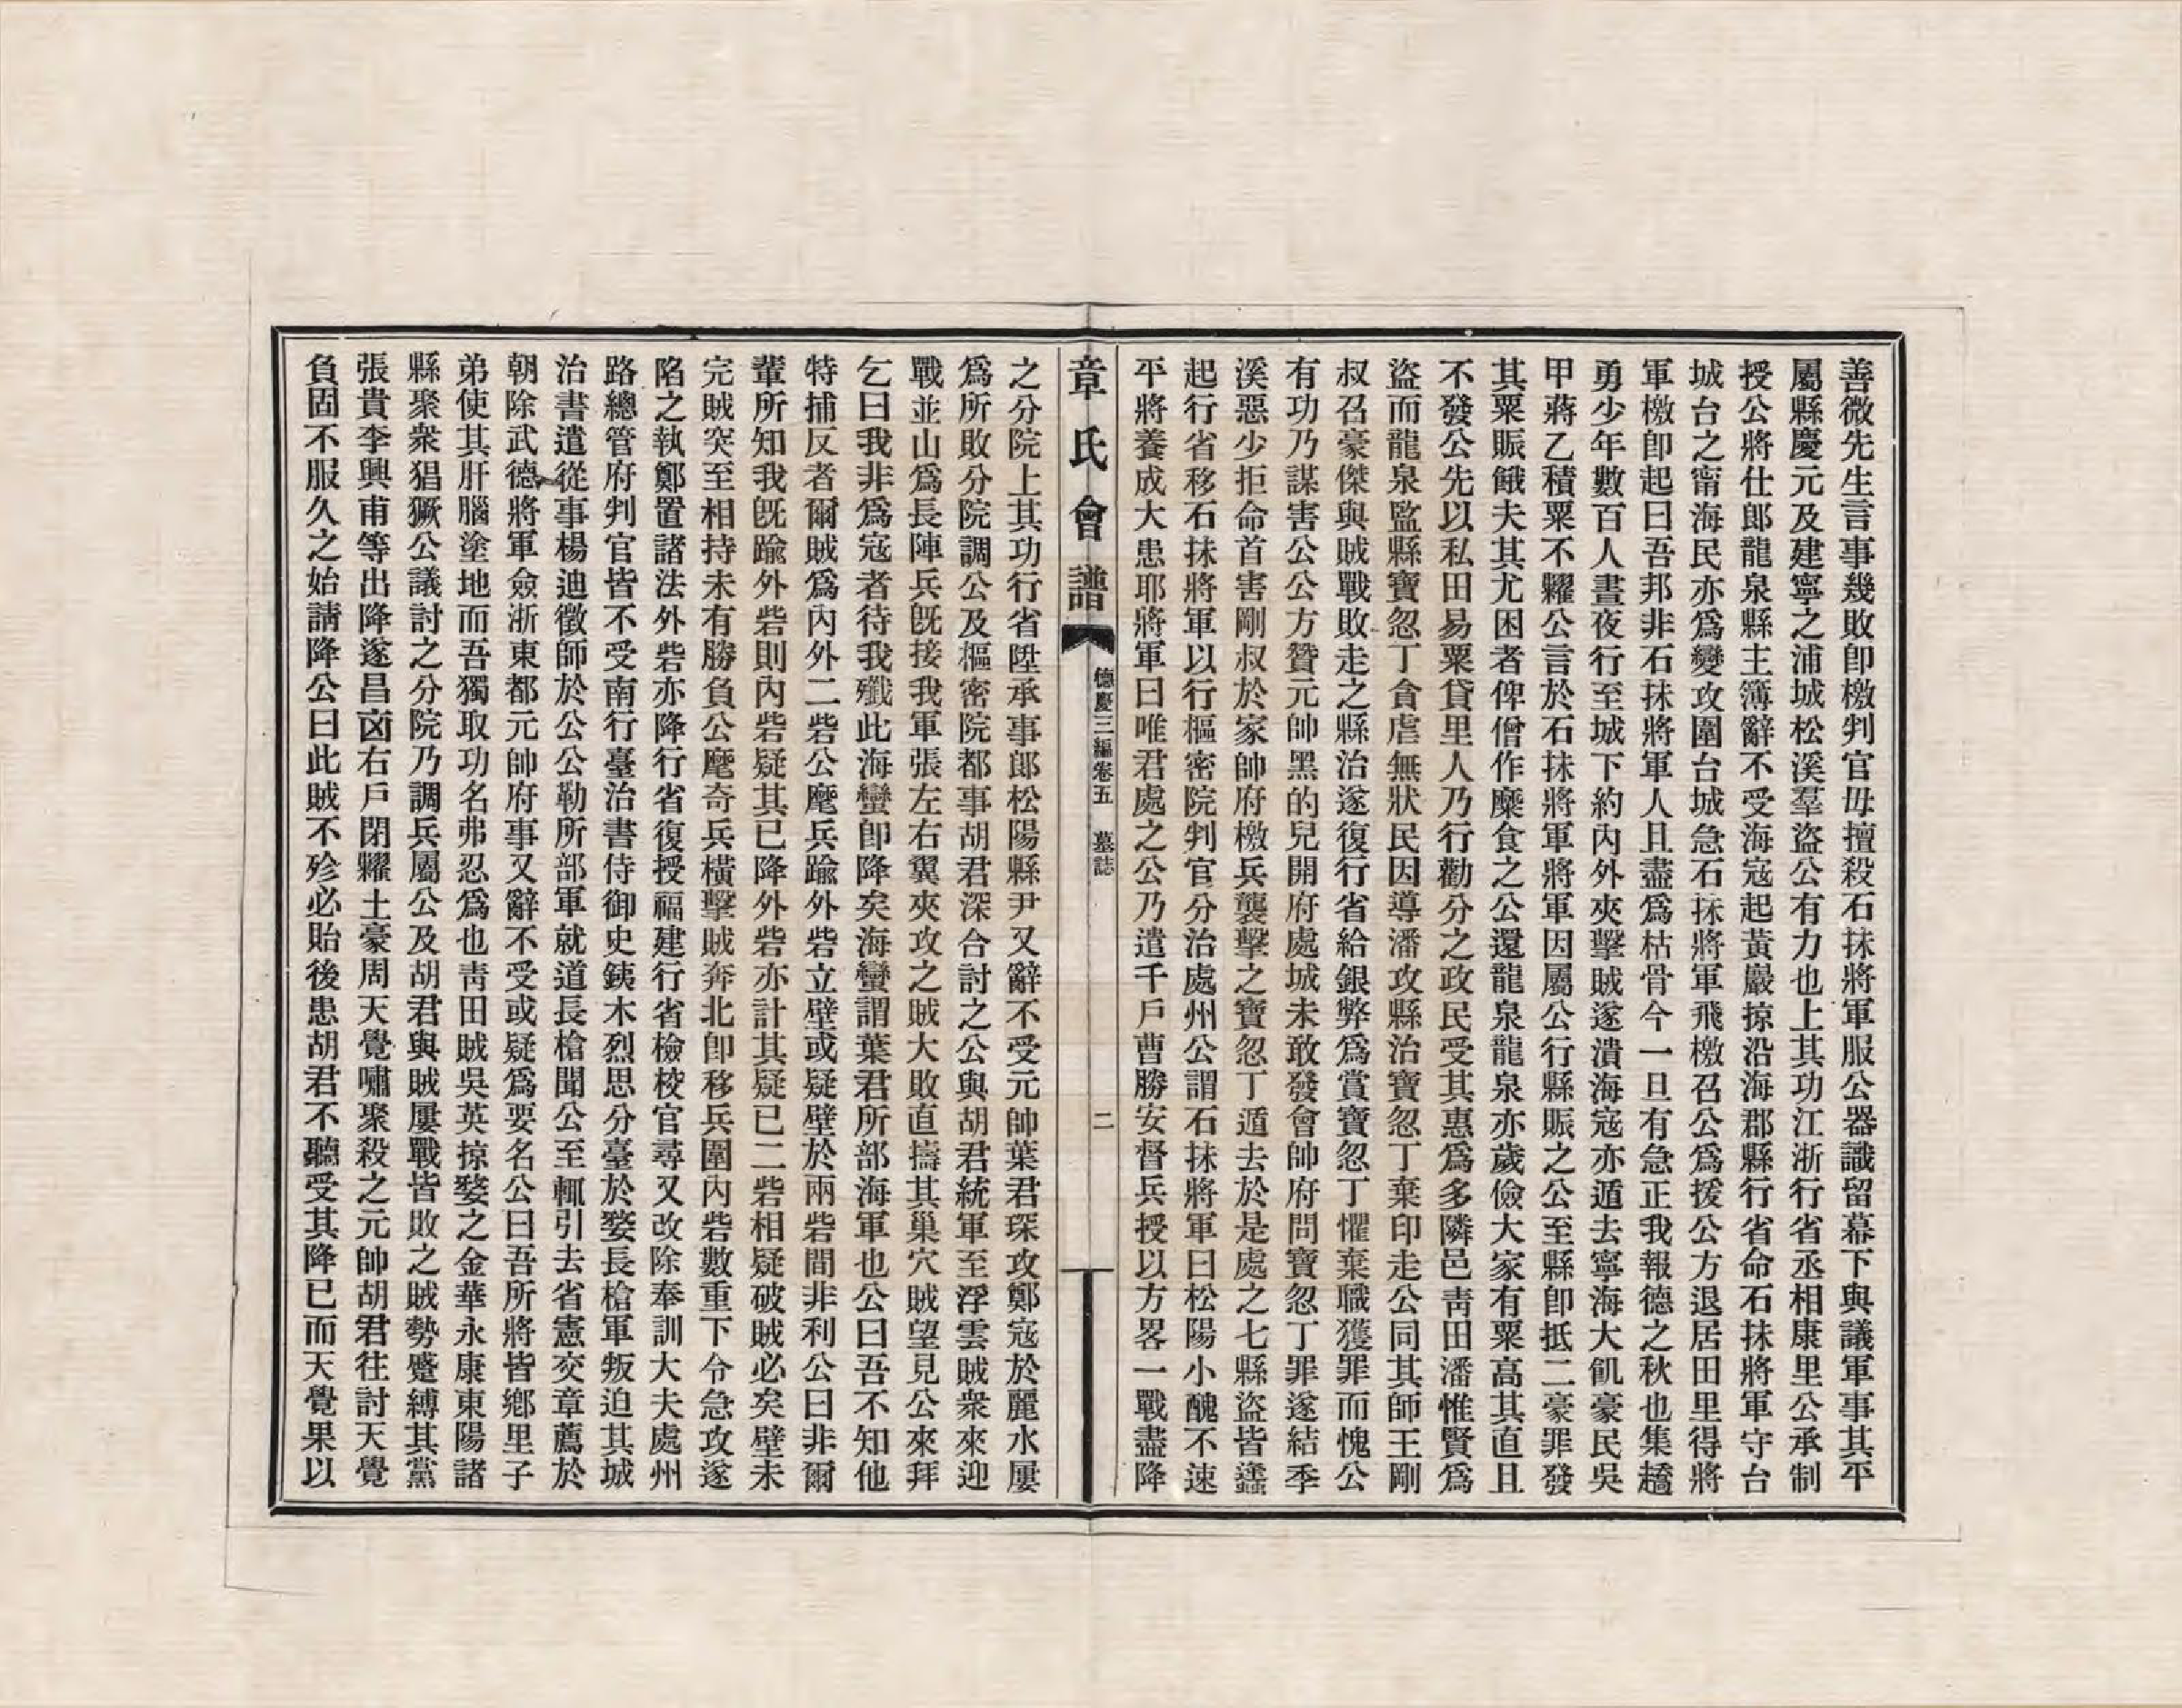 善微先生言事幾敗卽檄判官毋擅殺石抹將軍服公器識留幕下與議軍事其平
屬縣慶元及建寧之浦城松溪羣盜公有力也上其功江浙行省丞相康里公承制
授公將仕郎龍泉縣主簿辭不受海寇起黃巖掠沿海郡縣行省命石抹將軍守台
城台之甯海民亦爲變攻圍台城急石抹將軍飛檄召公爲援公方退居田里得將
軍檄卽起曰吾邦非石抹將軍人且盡爲枯骨今一旦有急正我報德之秋也集趫
勇少年數百人晝夜行至城下約內外夾擊賊遂潰海寇亦遁去寧海大飢豪民吳
甲蔣乙積粟不糶公言於石抹將軍將軍因屬公行縣賑之公至縣卽抵二豪罪發
其粟賑餓夫其尤困者俾僧作糜食之公還龍泉龍泉亦歲儉大家有粟高其直且
不發公先以私田易粟貸里人乃行勸分之政民受其惠爲多隣邑靑田潘惟賢爲
盜而龍泉監縣寶忽丁貪虐無狀民因導潘攻縣治寶忽丁棄印走公同其師王剛
叔召豪傑與賊戰敗走之縣治遂復行省給銀弊爲賞寶忽丁懼棄職獲罪而愧公
有功乃謀害公公方贊元帥黑的兒開府處城未敢發會帥府問寶忽丁罪遂結季
溪惡少拒命首害剛叔於家帥府檄兵襲擊之寶忽丁遁去於是處之七縣盜皆蠭
起行省移石抹將軍以行樞密院判官分治處州公謂石抹將軍曰松陽小醜不速
平將養成大患耶將軍曰唯君處之公乃遣千戶曹勝安督兵授以方畧一戰盡降
章氏會譜 德慶三編卷五 墓誌 二
之分院上其功行省陞承事郎松陽縣尹又辭不受元帥葉君琛攻鄭寇於麗水屢
爲所敗分院調公及樞密院都事胡君深合討之公與胡君統軍至浮雲賊衆來迎
戰並山爲長陣兵旣接我軍張左右翼夾攻之賊大敗直擣其巢穴賊望見公來拜
乞曰我非爲寇者待我殲此海蠻卽降矣海蠻謂葉君所部海軍也公曰吾不知他
特捕反者爾賊爲內外二砦公麾兵踰外砦立壁或疑壁於兩砦間非利公曰非爾
輩所知我旣踰外砦則內砦疑其已降外砦亦計其疑已二砦相疑破賊必矣壁未
完賊突至相持未有勝負公麾奇兵橫擊賊奔北卽移兵圍內砦數重下令急攻遂
陷之執鄭置諸法外砦亦降行省復授福建行省檢校官尋又改除奉訓大夫處州
路總管府判官皆不受南行臺治書侍御史銕木烈思分臺於婺長槍軍叛迫其城
治書遣從事楊迪徵師於公公勒所部軍就道長槍聞公至輒引去省憲交章薦於
朝除武德將軍僉浙東都元帥府事又辭不受或疑爲要名公曰吾所將皆鄕里子
弟使其肝腦塗地而吾獨取功名弗忍爲也靑田賊吳英掠婺之金華永康東陽諸
縣聚衆猖獗公議討之分院乃調兵屬公及胡君與賊屢戰皆敗之賊勢蹙縛其黨
張貴李興甫等出降遂昌卤右戶閉糶土豪周天覺嘯聚殺之元帥胡君往討天覺
負固不服久之始請降公曰此賊不殄必貽後患胡君不聽受其降已而天覺果以